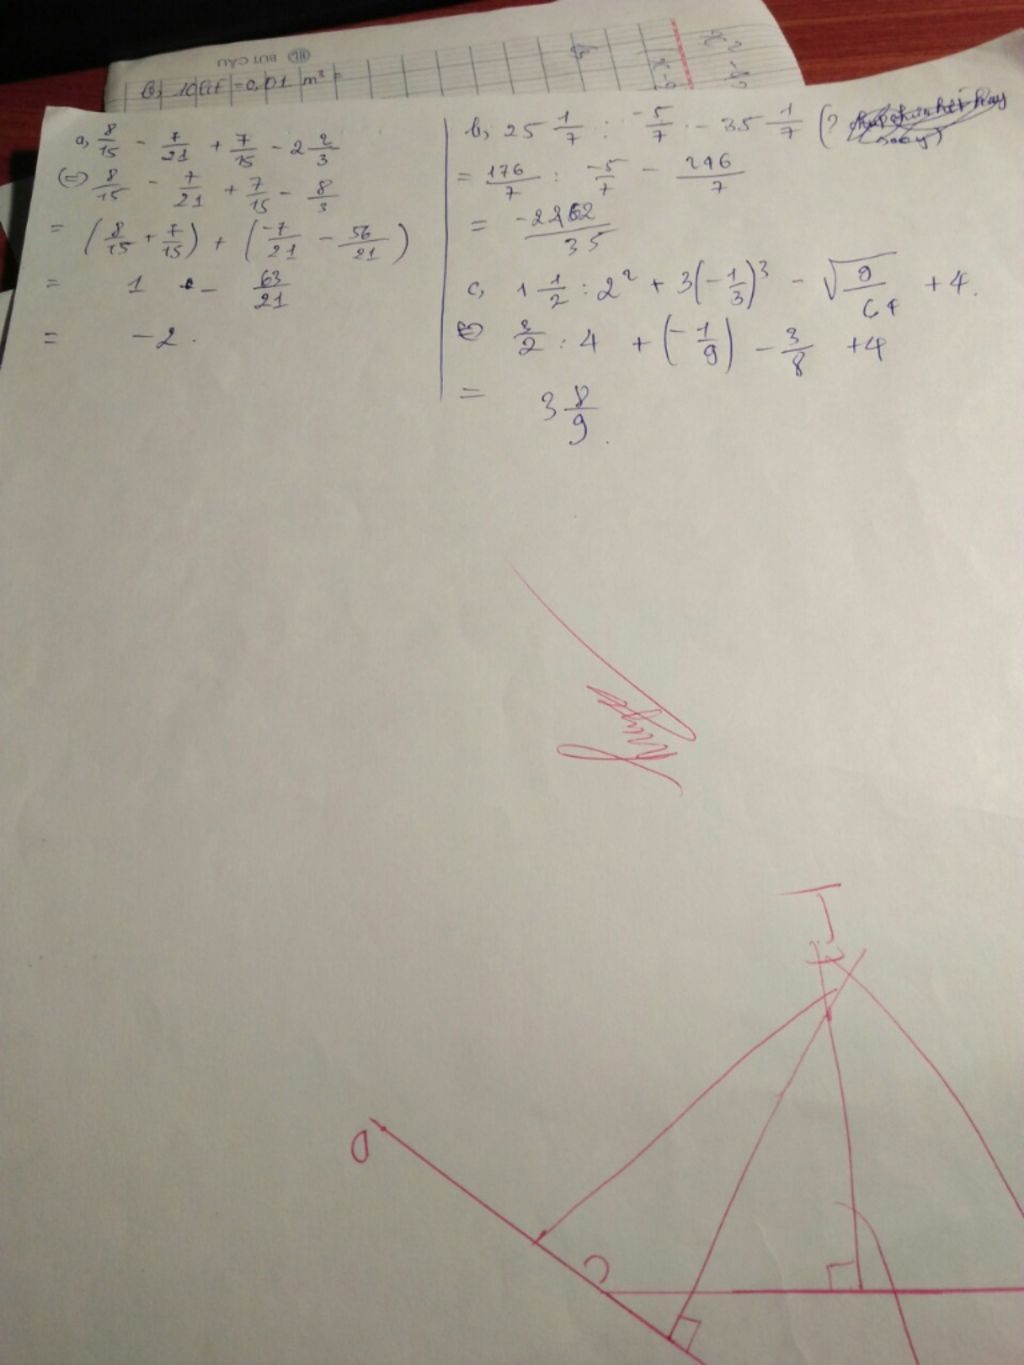 10lít = 0,01 m³ =
BÚT CẦU
a, 8/15 - 7/21 + 7/15 - 2 2/3
(=) 8/15 - 7/21 + 7/15 - 8/3
= (8/15 + 7/15) + (-7/21 - 56/21)
= 1 - 63/21
= -2.
b, 25 1/7 : -5/7 - 35 1/7 (?
= 176/7 : -5/7 - 246/7
= -2262/35
c, 1 1/2 : 2² + 3(-1/3)³ - √9/64 + 4.
(=) 3/2 : 4 + (-1/9) - 3/8 + 4
= 3 8/9.